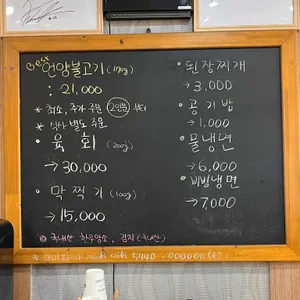 Best 언양불고기 (170g)
: 21,000
* 최소, 추가 주문 2인분 부터
* 식사 별도 주문
· 육회 (200g)
→ 30,000
· 막찍기 (100g)
→ 15,000
· 된장찌개
→ 3,000
· 공기밥
→ 1,000
· 물냉면
→ 6,000
· 비빔냉면
→ 7,000
국내산 한우암소, 김치 (국내산)